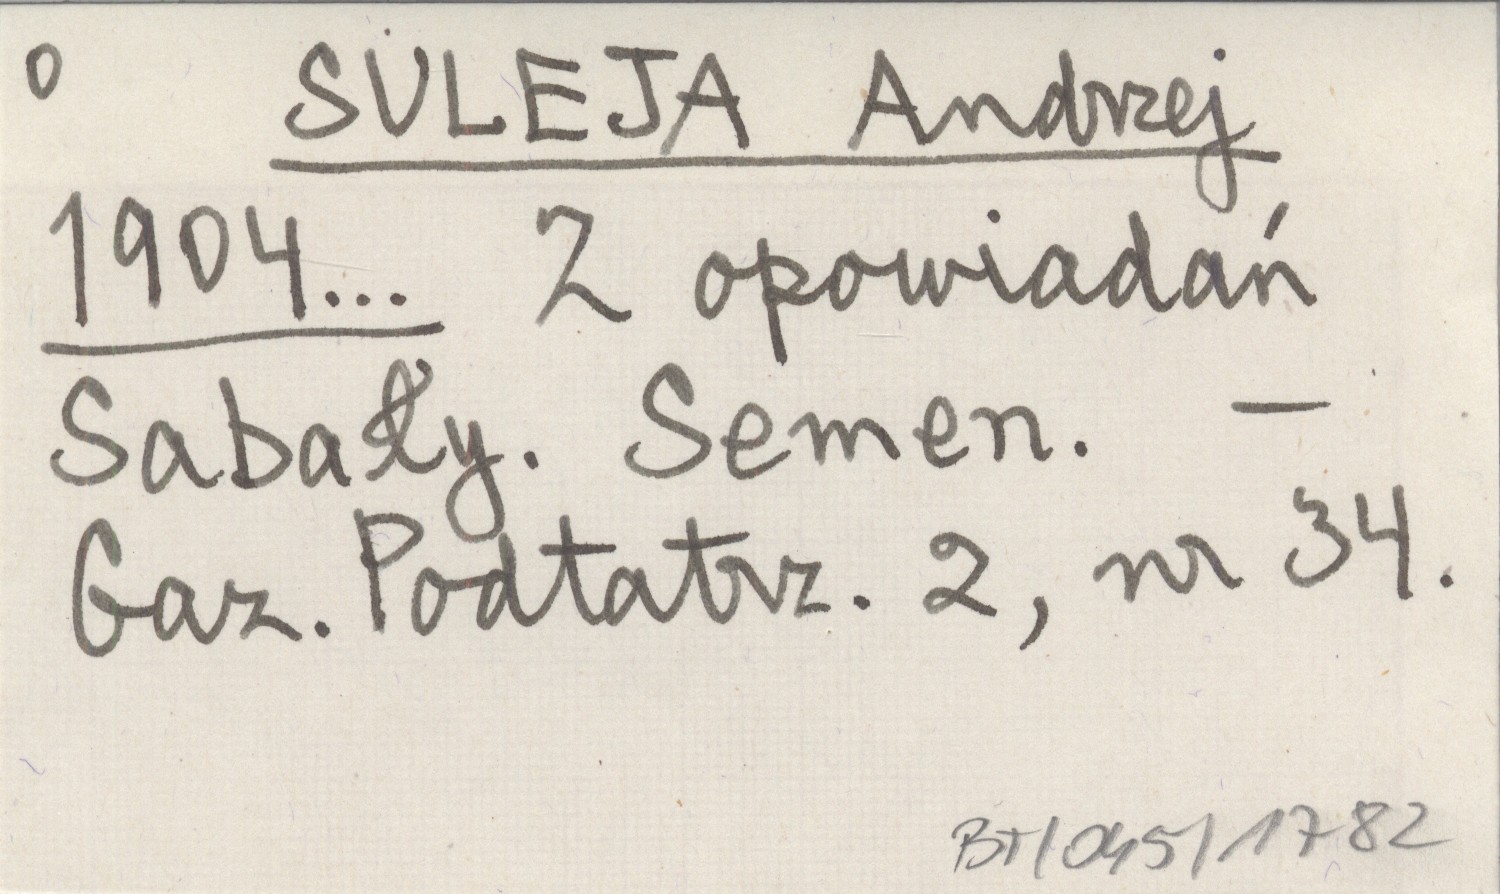 o SULEJA Andrzej
1904... Z opowiadań
Sabały. Semen. —
Gaz. Podtatrz. 2, nr 34.
BT/045/1782